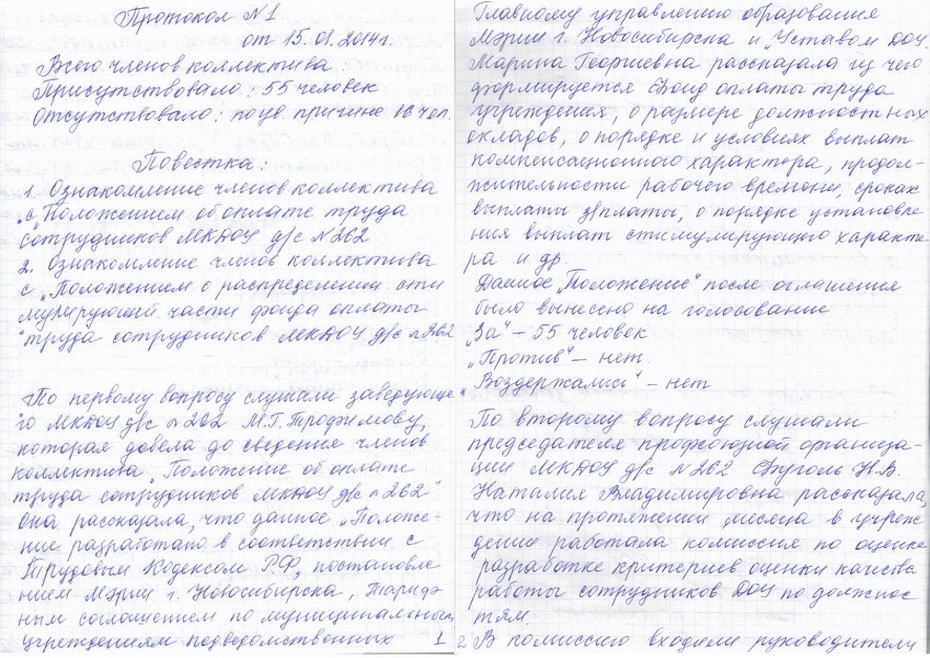 Протокол N1
от 15.01.2014г.
Всего членов коллектива:
Присутствовало: 55 человек
Отсутствовало: по ув. причине 18 чел.
Повестка:
1. Ознакомление членов коллектива
с „Положением об оплате труда
сотрудников МКДОУ д/с N262
2. Ознакомление членов коллектива
с „Положением о распределении сти
мулирующей части фонда оплаты
труда сотрудников МКДОУ д/с N262
По первому вопросу слушали заведующе
го МКДОУ д/с N262 М.Г. Трофимову,
которая довела до сведения членов
коллектива „Положение об оплате
труда сотрудников МКДОУ д/с N262"
Она рассказала, что данное „Положе-
ние разработано в соответствии с
Трудовым Кодексом РФ, постановле
нием Мэрии г. Новосибирска, Тариф
ным соглашением по муниципальным
учреждениям подведомственных 1
Главному управлению образования
Мэрии г. Новосибирска и „Уставом ДОУ.
Марина Георгиевна рассказала из чего
формируется Фонд оплаты труда
учреждения, о размере должностных
окладов, о порядке и условиях выплат
компенсационного характера, продол-
жительности рабочего времени, сроках
выплаты з/платы, о порядке установле
ния выплат стимулирующего характе-
ра и др.
Данное „Положение" после оглашения
было вынесено на голосование
„За" – 55 человек
„Против" – нет.
„Воздержались" – нет
По второму вопросу слушали
председателя профсоюзной организа-
ции МКДОУ д/с N262 Н.В.
Наталия Владимировна рассказала,
что на протяжении месяца в учреж
дении работала комиссия по оценке
разработке критериев оценки качества
работы сотрудников ДОУ по должнос
тям.
2 В комиссию входили руководители